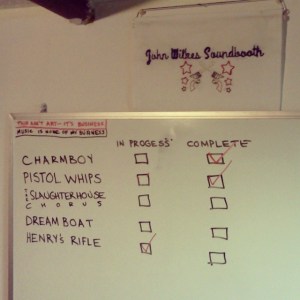 John Wilkes Soundbooth
THIS ISN'T ART - IT'S BUSINESS
MUSIC IS NONE OF MY BUSINESS
IN PROGESS COMPLETE
CHARMBOY
PISTOL WHIPS
THE SLAUGHTERHOUSE
CHORUS
DREAM BOAT
HENRY'S RIFLE